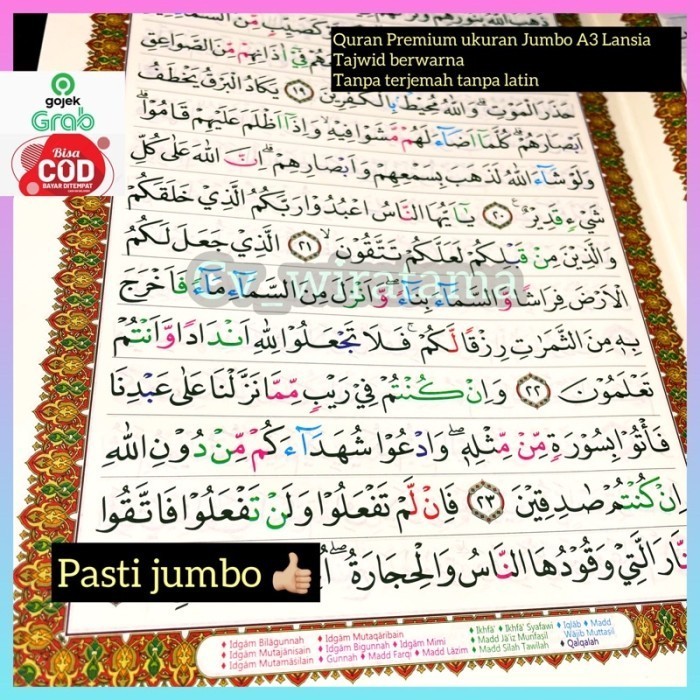 Quran Premium ukuran Jumbo A3 Lansia
Tajwid berwarna
Tanpa terjemah tanpa latin
gojek
Grab
Bisa
COD
BAYAR DITEMPAT
حَذَرَ الْمَوْتِۗ وَاللّٰهُ مُحِيْطٌۢ بِالْكٰفِرِيْنَ ١٩ يَكَادُ الْبَرْقُ يَخْطَفُ
اَبْصَارَهُمْۗ كُلَّمَآ اَضَاۤءَ لَهُمْ مَّشَوْا فِيْهِۙ وَاِذَآ اَظْلَمَ عَلَيْهِمْ قَامُوْاۗ
وَلَوْ شَاۤءَ اللّٰهُ لَذَهَبَ بِسَمْعِهِمْ وَاَبْصَارِهِمْۗ اِنَّ اللّٰهَ عَلٰى كُلِّ
شَيْءٍ قَدِيْرٌ ࣖ ٢٠ يٰٓاَيُّهَا النَّاسُ اعْبُدُوْا رَبَّكُمُ الَّذِيْ خَلَقَكُمْ
وَالَّذِيْنَ مِنْ قَبْلِكُمْ لَعَلَّكُمْ تَتَّقُوْنَۙ ٢١ الَّذِيْ جَعَلَ لَكُمُ
الْاَرْضَ فِرَاشًا وَّالسَّمَاۤءَ بِنَاۤءً وَّاَنْزَلَ مِنَ السَّمَاۤءِ مَاۤءً فَاَخْرَجَ
بِهٖ مِنَ الثَّمَرٰتِ رِزْقًا لَّكُمْۚ فَلَا تَجْعَلُوْا لِلّٰهِ اَنْدَادًا وَّاَنْتُمْ
تَعْلَمُوْنَ ٢٢ وَاِنْ كُنْتُمْ فِيْ رَيْبٍ مِّمَّا نَزَّلْنَا عَلٰى عَبْدِنَا
فَأْتُوْا بِسُوْرَةٍ مِّنْ مِّثْلِهٖۖ وَادْعُوْا شُهَدَاۤءَكُمْ مِّنْ دُوْنِ اللّٰهِ
اِنْ كُنْتُمْ صٰدِقِيْنَ ٢٣ فَاِنْ لَّمْ تَفْعَلُوْا وَلَنْ تَفْعَلُوْا فَاتَّقُوا
النَّارَ الَّتِيْ وَقُوْدُهَا النَّاسُ وَالْحِجَارَةُۖ
Cv_wiratama
Pasti jumbo
Idgām Bilāgunnah
Idgām Mutajānisain
Idgām Mutamāsilain
Idgām Mutaqāribain
Idgām Bigunnah Idgām Mimi
Gunnah Madd Farqi Madd Lāzim
Ikhfā' Ikhfā' Syafawi
Madd Jā'iz Munfaşil
Madd Silah Tawilah
Iqlāb Madd
Wājib Muttaşil
Qalqalah